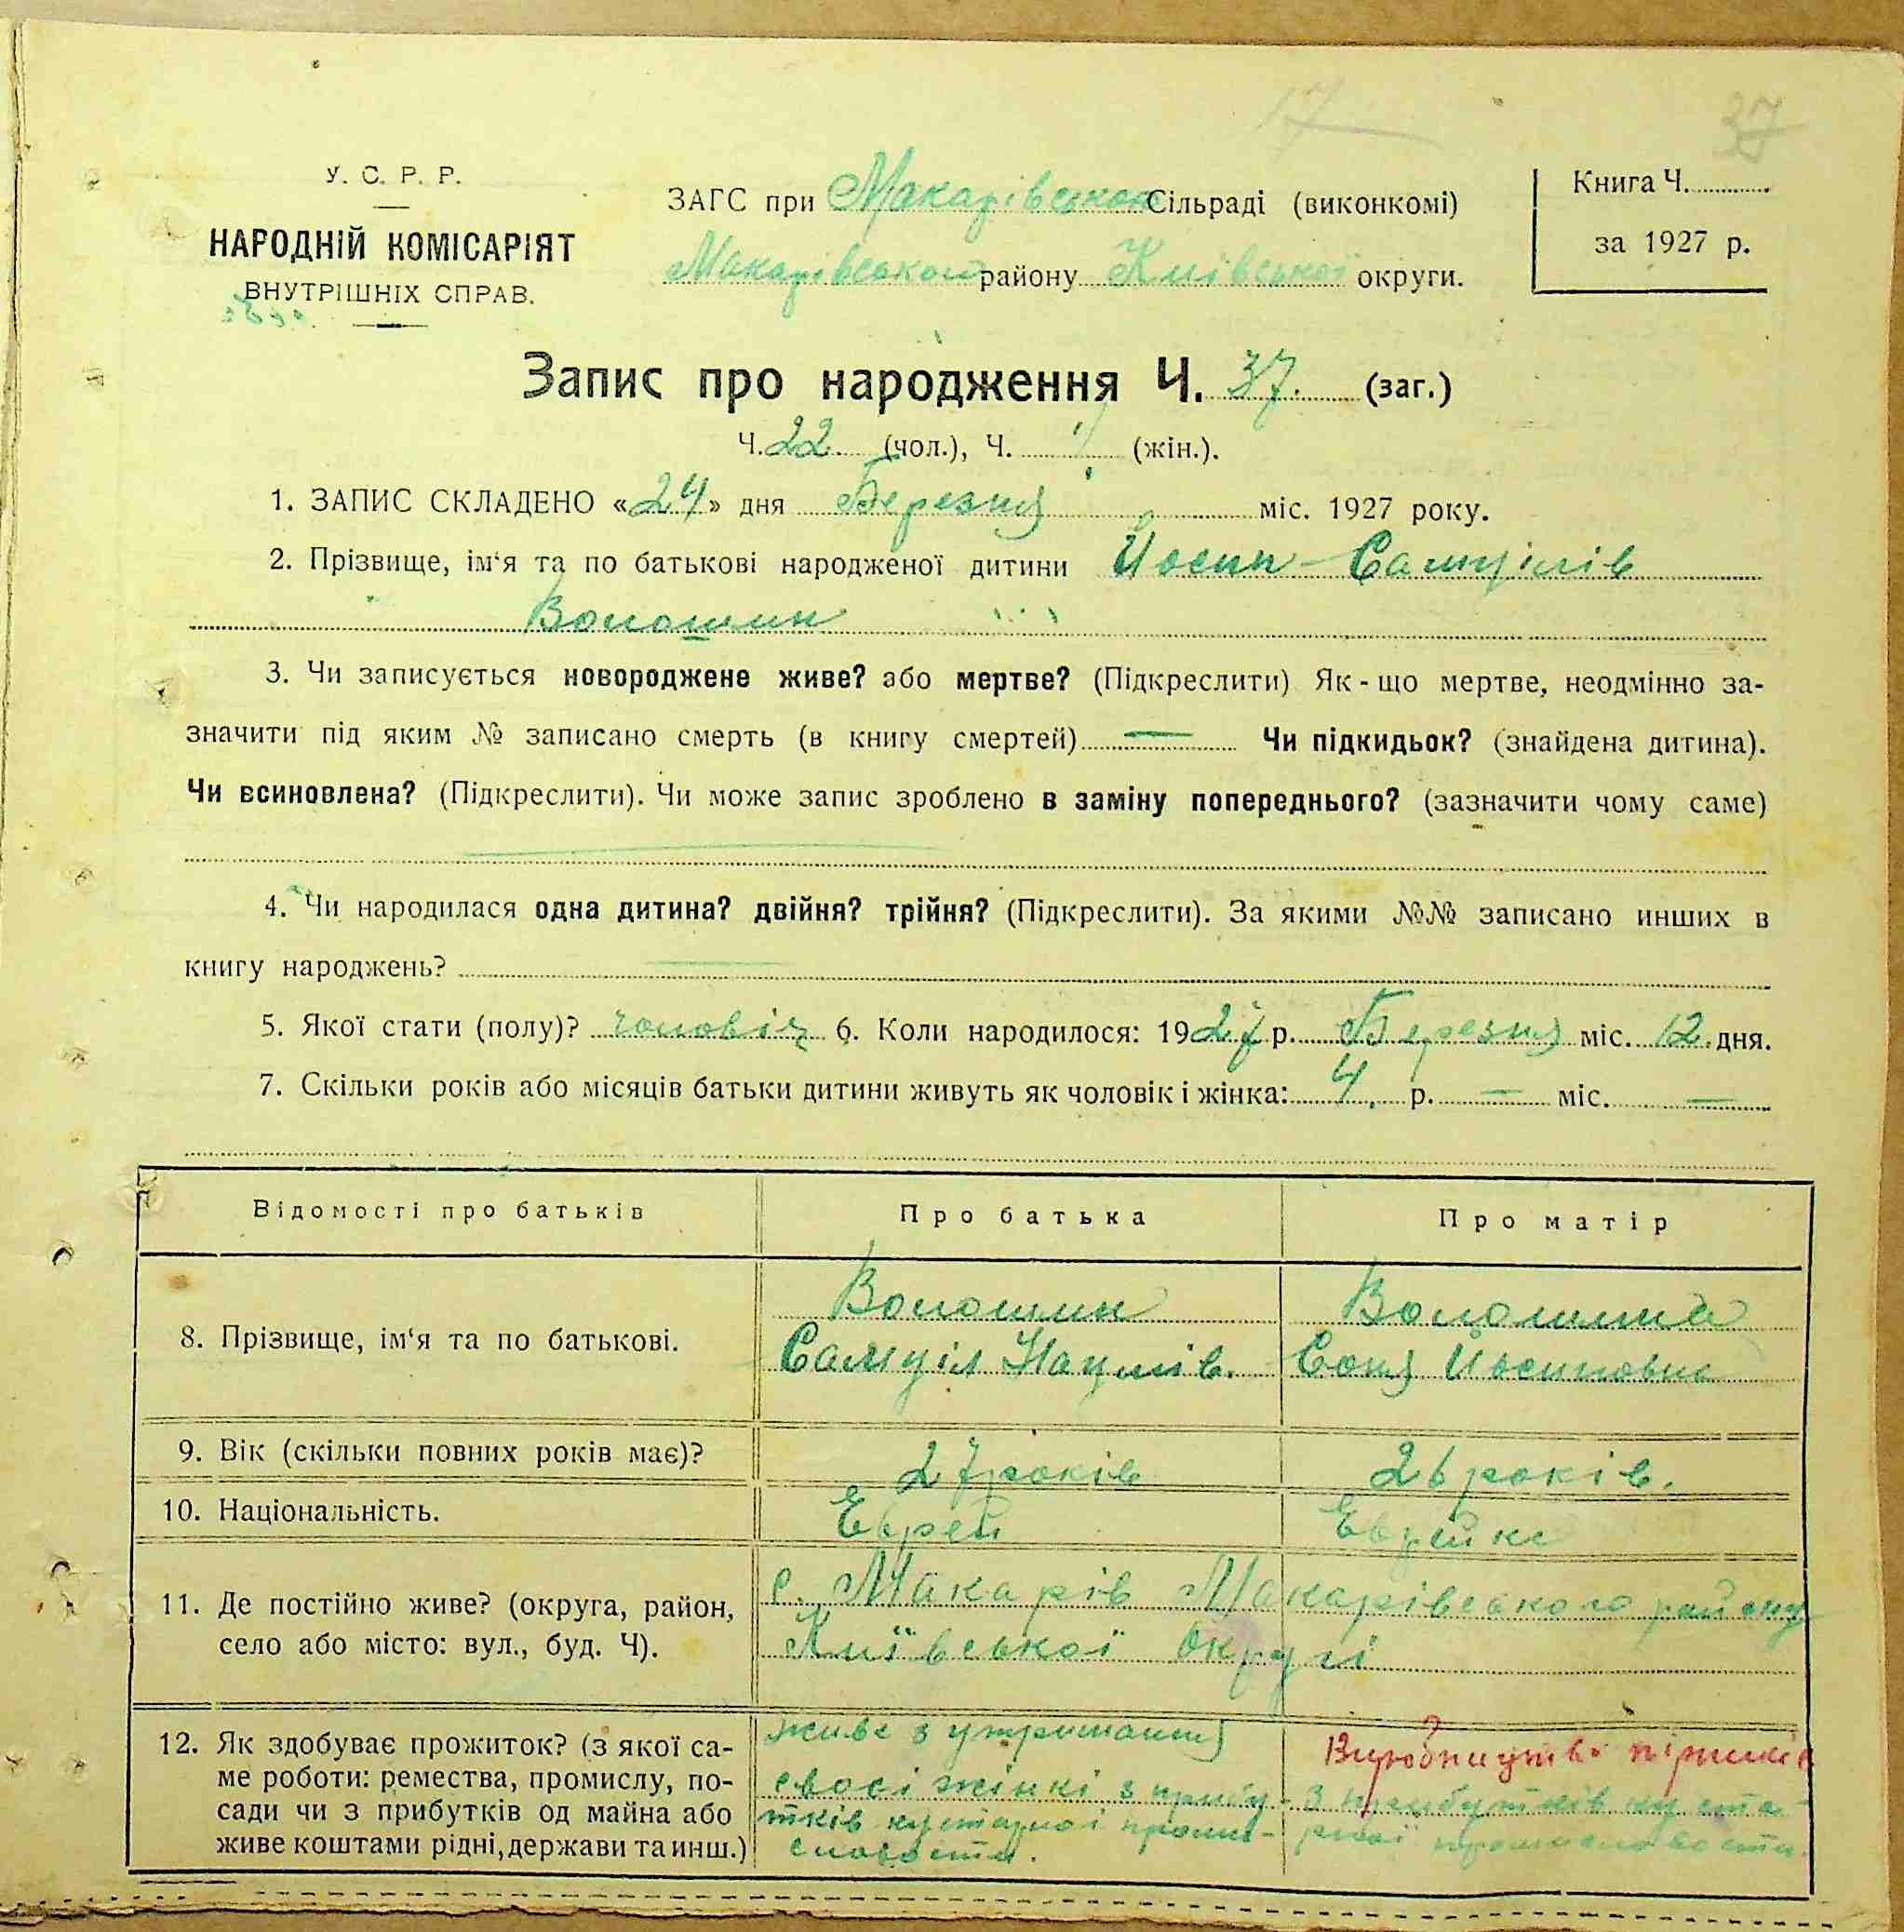 17 37
У. С. Р. Р.
НАРОДНІЙ КОМІСАРІЯТ
ВНУТРІШНІХ СПРАВ.
ЗАГС при Макарівської Сільраді (виконкомі)
Макарівського району Київської округи.
Книга Ч.
за 1927 р.
Запис про народження Ч. 37. (заг.)
Ч. 22. (чол.), Ч. (жін.).
1. ЗАПИС СКЛАДЕНО «24» дня Березня міс. 1927 року.
2. Прізвище, ім‘я та по батькові народженої дитини Йосип Самуілів
Волошин
3. Чи записується новороджене живе? або мертве? (Підкреслити) Як-що мертве, неодмінно за-
значити під яким № записано смерть (в книгу смертей) — Чи підкидьок? (знайдена дитина).
Чи всиновлена? (Підкреслити). Чи може запис зроблено в заміну попереднього? (зазначити чому саме)
4. Чи народилася одна дитина? двійня? трійня? (Підкреслити). За якими №№ записано инших в
книгу народжень? —
5. Якої стати (полу)? чоловіч 6. Коли народилося: 1927 р. Березня міс. 12. дня.
7. Скільки років або місяців батьки дитини живуть як чоловік і жінка: 4. р. — міс. —
Відомості про батьків Про батька Про матір
8. Прізвище, ім‘я та по батькові.
Волошин
Самуіл Наумів.
Волошина
Соня Йосиповна
9. Вік (скільки повних років має)? 27 років 26 років.
10. Національність. Еврей Еврейка
11. Де постійно живе? (округа, район,
село або місто: вул., буд. Ч).
с. Макарів Макарівського району
Київської Округи
12. Як здобуває прожиток? (з якої са-
ме роботи: ремества, промислу, по-
сади чи з прибутків од майна або
живе коштами рідні, держави та инш.)
живе з утримання
своєі жінкі з прибу-
тків кустарноі проми-
словости.
Виробництво
з прибутків куста-
рної промисловости.